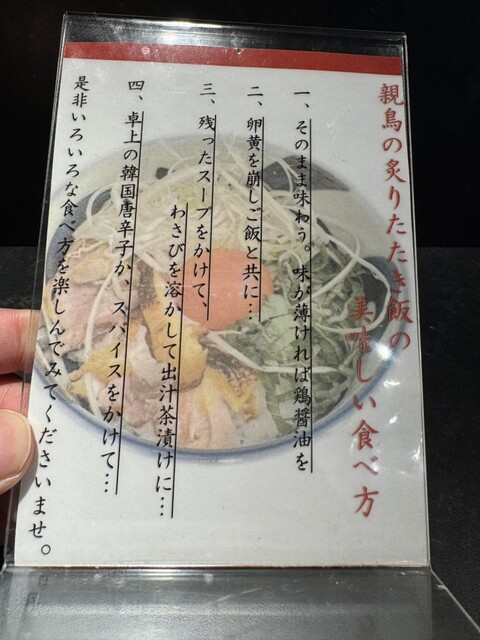 親鳥の炙りたたき飯の
美味しい食べ方
一、そのまま味わう。味が薄ければ鶏醤油を
二、卵黄を崩しご飯と共に…
三、残ったスープをかけて、
わさびを溶かして出汁茶漬けに…
四、卓上の韓国唐辛子か、スパイスをかけて…
是非いろいろな食べ方を楽しんでみてくださいませ。